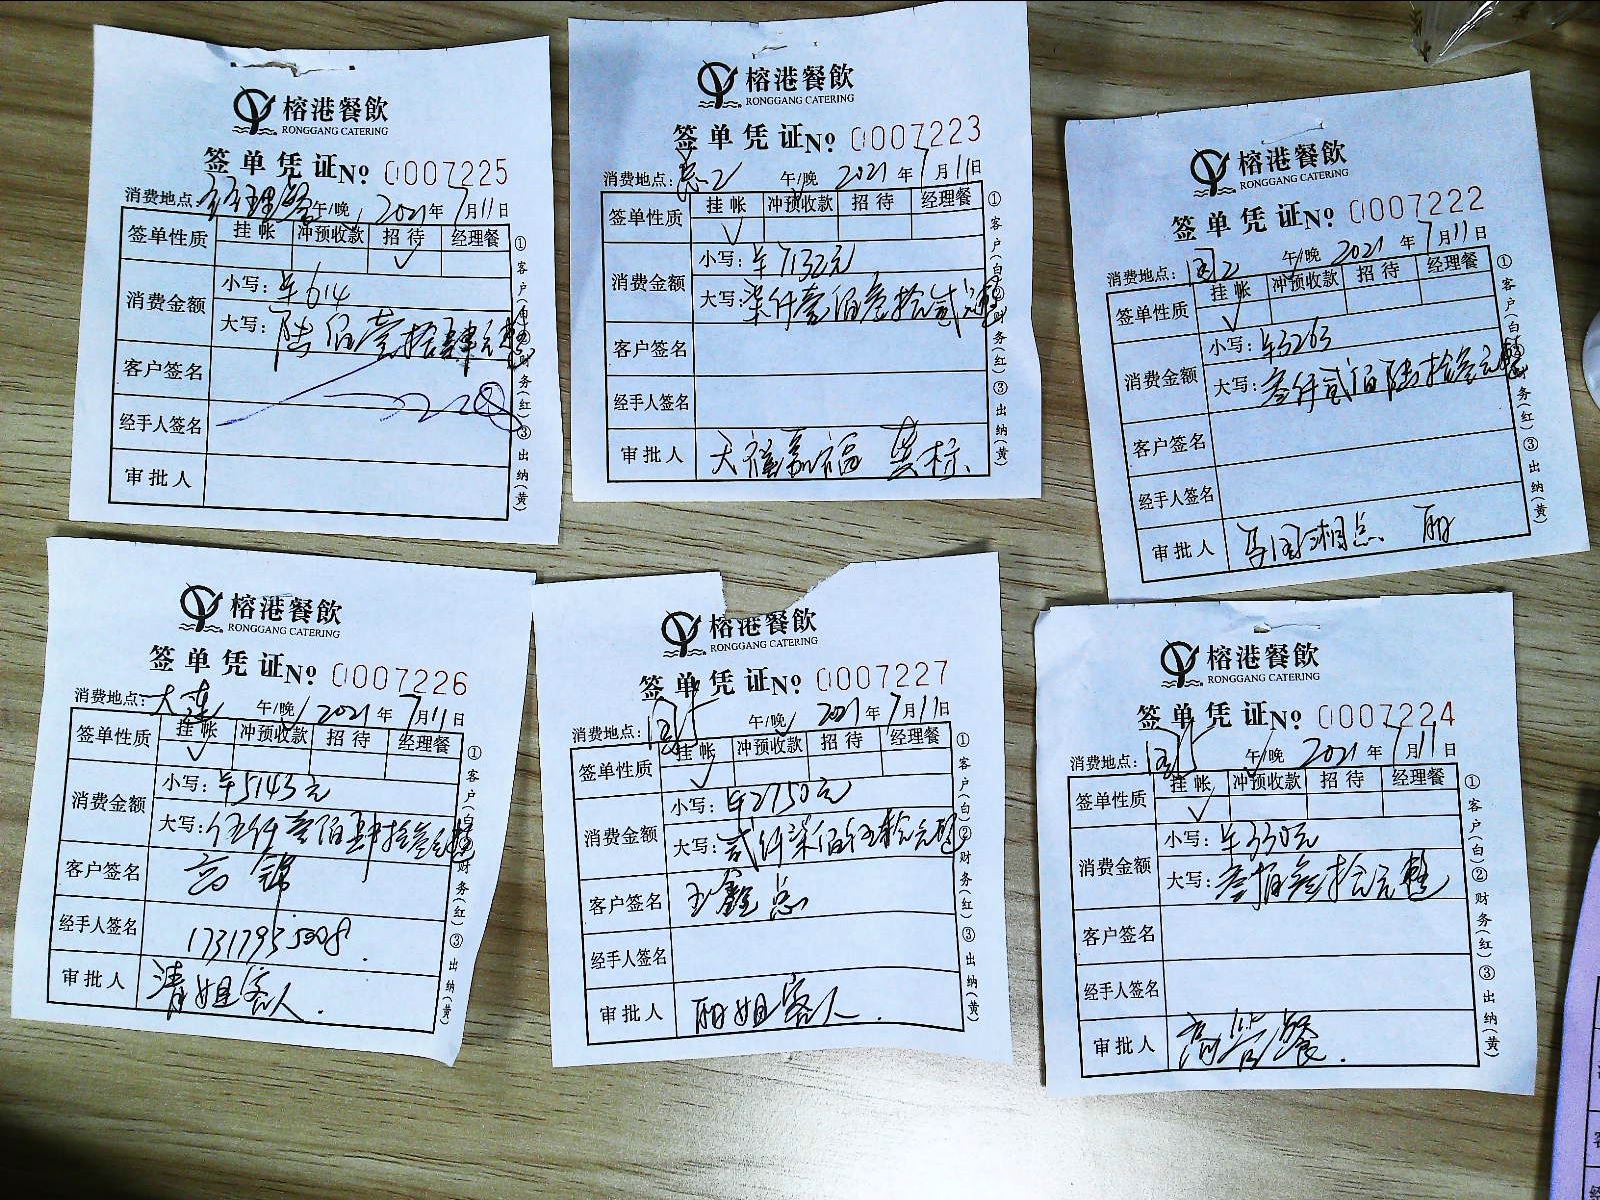 榕港餐飲
RONGGANG CATERING
签单凭证№ 0007225
消费地点: 经理餐 午/晚 2021年7月11日
签单性质 挂帐 冲预收款 招待 经理餐
✓
消费金额 小写: ¥614
大写: 陆佰壹拾肆元整
客户签名
经手人签名
审批人
①客户(白)②财务(红)③出纳(黄)
榕港餐飲
RONGGANG CATERING
签单凭证№ 0007223
消费地点: 2 午/晚 2021年7月11日
签单性质 挂帐 冲预收款 招待 经理餐
✓
消费金额 小写: ¥7132元
大写: 柒仟壹佰叁拾贰元整
客户签名
经手人签名
审批人 天福嘉福
①客户(白)②财务(红)③出纳(黄)
榕港餐飲
RONGGANG CATERING
签单凭证№ 0007222
消费地点: 2 午/晚 2021年7月11日
签单性质 挂帐 冲预收款 招待 经理餐
✓
消费金额 小写: ¥3263
大写: 叁仟贰佰陆拾叁元整
客户签名
经手人签名
审批人
①客户(白)②财务(红)③出纳(黄)
榕港餐飲
RONGGANG CATERING
签单凭证№ 0007226
消费地点: 大莲 午/晚 2021年7月11日
签单性质 挂帐 冲预收款 招待 经理餐
✓
消费金额 小写: ¥5143元
大写: 伍仟壹佰肆拾叁元整
客户签名 高锦
经手人签名
审批人 清姐客人.
①客户(白)②财务(红)③出纳(黄)
榕港餐飲
RONGGANG CATERING
签单凭证№ 0007227
消费地点: 午/晚 2021年7月11日
签单性质 挂帐 冲预收款 招待 经理餐
✓
消费金额 小写: ¥2750元
大写: 贰仟柒佰伍拾元整
客户签名 王鑫总
经手人签名
审批人 丽姐客人.
①客户(白)②财务(红)③出纳(黄)
榕港餐飲
RONGGANG CATERING
签单凭证№ 0007224
消费地点: 午/晚 2021年7月11日
签单性质 挂帐 冲预收款 招待 经理餐
✓
消费金额 小写: ¥330元
大写: 叁佰叁拾元整
客户签名
经手人签名
审批人 高管餐.
①客户(白)②财务(红)③出纳(黄)